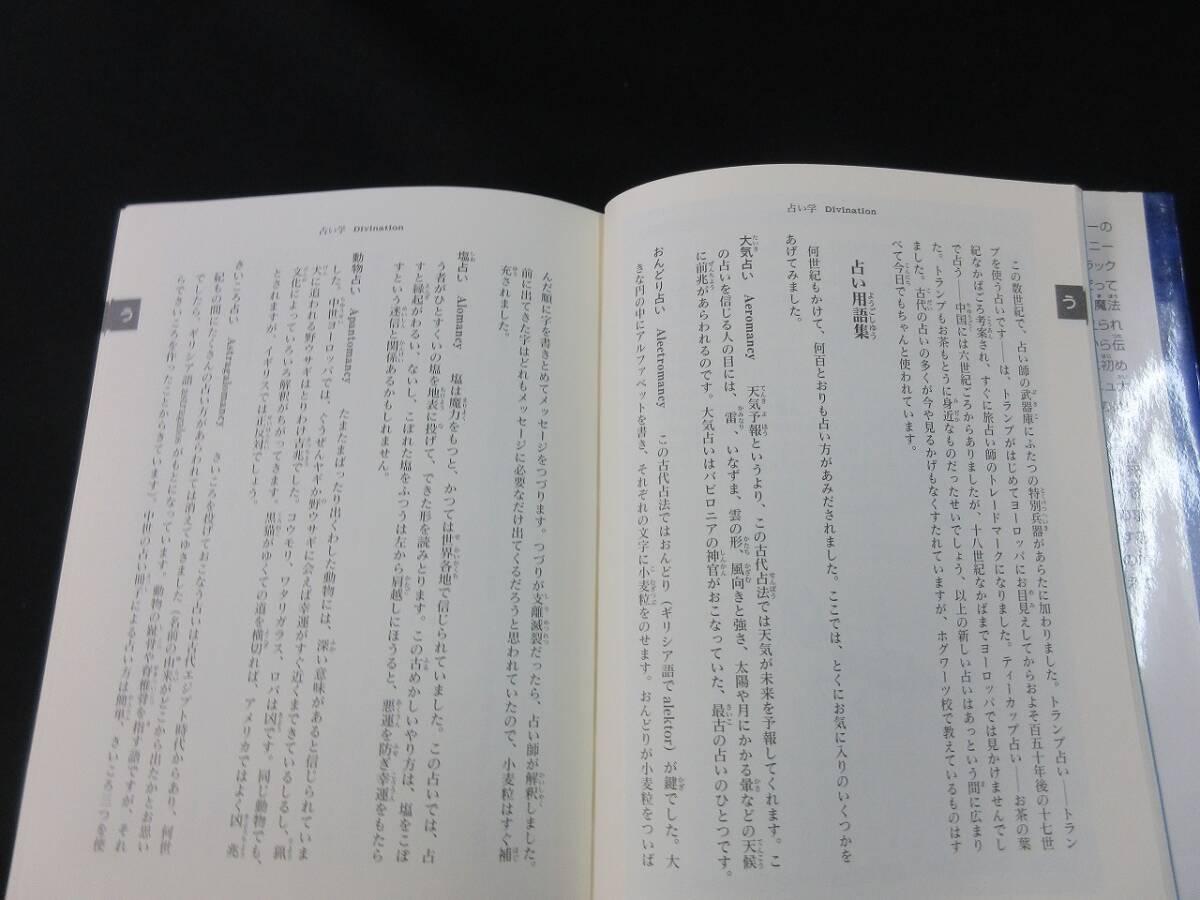 占い学 Divination
う
この数世紀で、占い師の武器庫にふたつの特別兵器があらたに加わりました。トランプ占い――トラン
プを使う占いです――は、トランプがはじめてヨーロッパにお目見えしてからおよそ百五十年後の十七世
紀なかばごろ考案され、すぐに旅占い師のトレードマークになりました。ティーカップ占い――お茶の葉
で占う――中国には六世紀ごろからありましたが、十八世紀なかばまでヨーロッパでは見かけませんでし
た。トランプもお茶もとうに身近なものだったせいでしょう、以上の新しい占いはあっという間に広まり
ました。古代の占いの多くが今や見るかげもなくすたれていますが、ホグワーツ校で教えているものはす
べて今日でもちゃんと使われています。
占い用語集
何世紀もかけて、何百とおりも占い方があみだされました。ここでは、とくにお気に入りのいくつかを
あげてみました。
大気占い Aeromancy 天気予報というより、この古代占法では天気が未来を予報してくれます。こ
の占いを信じる人の目には、雷、いなずま、雲の形、風向きと強さ、太陽や月にかかる暈などの天候
に前兆があらわれるのです。大気占いはバビロニアの神官がおこなっていた、最古の占いのひとつです。
おんどり占い Alectromancy この古代占法ではおんどり（ギリシア語で alektor）が鍵でした。大
きな円の中にアルファベットを書き、それぞれの文字に小麦粒をのせます。おんどりが小麦粒をついば
占い学 Divination
う
んだ順に字を書きとめてメッセージをつづります。つづりが支離滅裂だったら、占い師が解釈しました。
前に出てきた字はどれもメッセージに必要なだけ出てくるだろうと思われていたので、小麦粒はすぐ補
充されました。
塩占い Alomancy 塩は魔力をもつと、かつては世界各地で信じられていました。この占いでは、占
う者がひとすくいの塩を地表に投げて、できた形を読みとります。この古めかしいやり方は、塩をこぼ
すと縁起がわるい、ないし、こぼれた塩をふつうは左から肩越しにほうると、悪運を防ぎ幸運をもたら
すという迷信と関係あるかもしれません。
動物占い Apantomancy たまたまばったり出くわした動物には、深い意味があると信じられていま
した。中世ヨーロッパでは、ぐうぜんヤギか野ウサギに会えば幸運がすぐ近くまできているしるし、猟
犬に追われる野ウサギはとりわけ吉兆でした。コウモリ、ワタリガラス、ロバは凶です。同じ動物でも、
文化によっていろいろ解釈がちがってきます。黒猫がゆくての道を横切れば、アメリカではよく凶兆
とされますが、イギリスでは正反対でしょう。
さいころ占い Astragalomancy さいころを投げておこなう占いは古代エジプト時代からあり、何世
紀もの間にたくさんの占い方があらわれては消えてゆきました（名前の由来がどこから出たかとお思い
でしたら、ギリシア語 がもとになっています。動物の趾骨や脊椎骨を指す語ですが、それ
らでさいころを作ったことからきています）。中世の占い冊子による占い方は簡単、さいころ三つを使